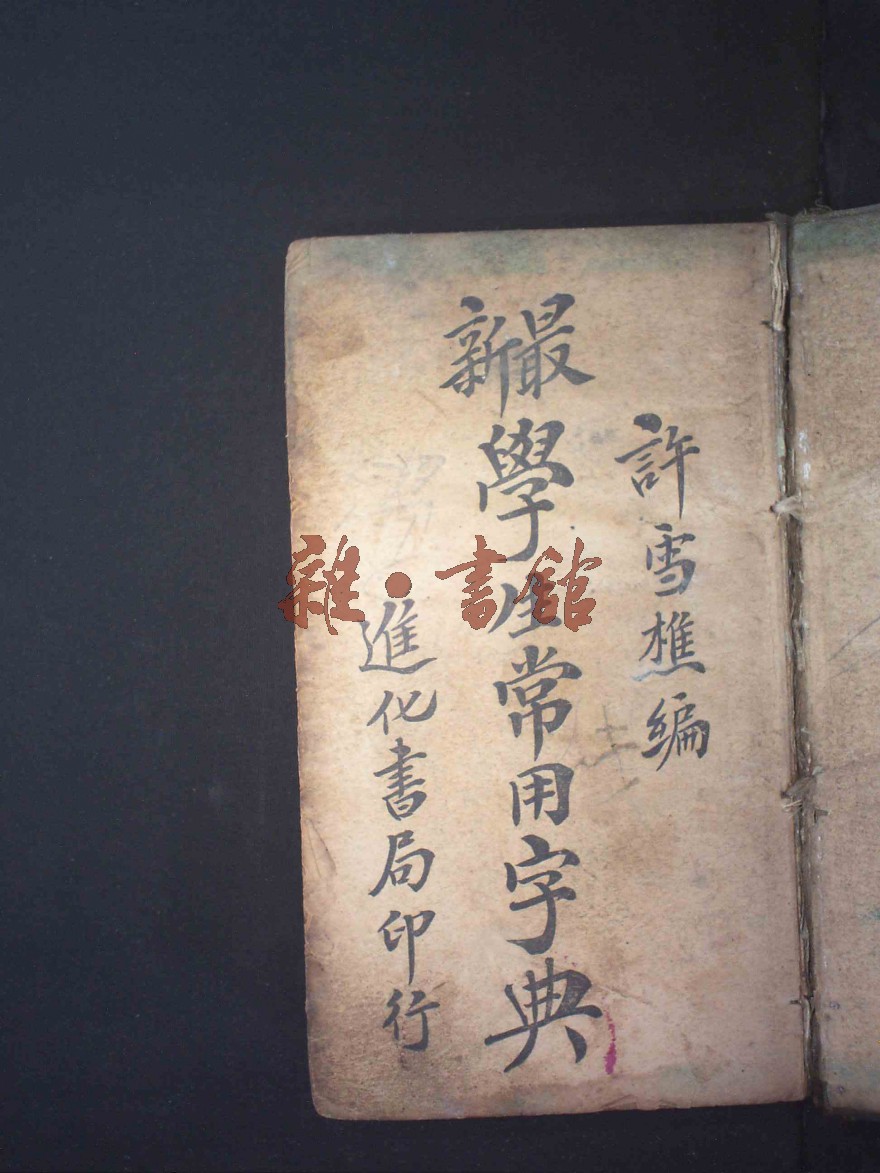 許雪樵編
最新
學生常用字典
進化書局印行
雜·書館